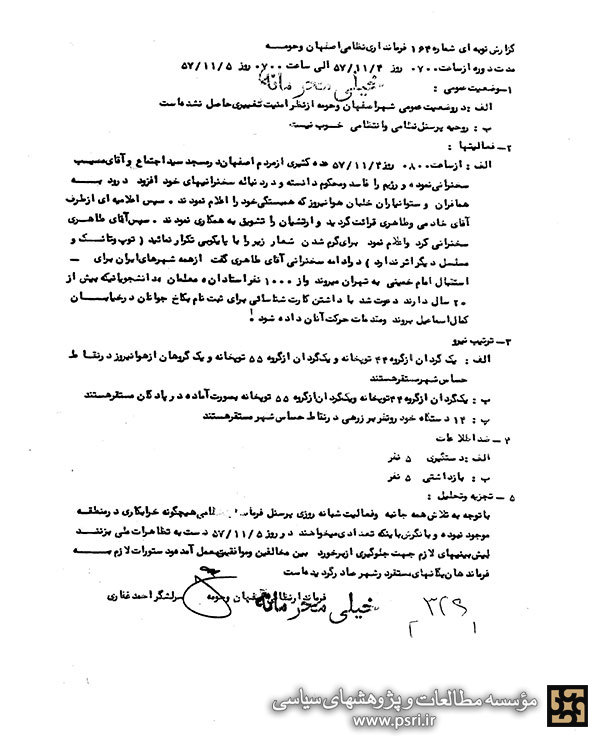 گزارش نوبه ای شماره ۱۶۴ فرمانداری نظامی اصفهان وحومــه
مدت دوره ازساعت ۰۷۰۰ روز ۵۷/۱۱/۴ الی ساعت ۰۷۰۰ روز ۵۷/۱۱/۵
۱ــ وضعیت عمومی :
خیلی محرمانه
الف : دروضعیت عمومی شهراصفهان وحومه ازنظر امنیت تغییری حاصل نشده است
ب : روحیه پرسنل نظامی وانتظامی خوب نیست
۲ــ فعالیتها :
الف : ازساعت ۰۸۰۰ روز ۵۷/۱۱/۴ عده کثیری ازمردم اصفهان درمسجد سید اجتماع وآقای
سخنرانی نموده و رژیم را فاسد ومحکوم دانسته و درد نباله سخنرانیهای خود افزود درود بــه
همافران و ستوانیاران خلبان هوانیروزکه همبستگی خود را اعلام نمودند ــ سپس اعلامیه ای ازطرف
آقای خادمی وطاهری قرائت گردید و ارتشیان را تشویق به همکاری نمودند ــ سپس آقای طاهــری
سخنرانی کرد واعلام نمود برای گرم شدن شعار زیر را با پایکوبی تکرار نمائید ( توپ وتانــک و
مسلسل دیگر اثر ندارد ) درادامه سخنرانی آقای طاهری گفت ازهمه شهرهای ایران برای ــ
استقبال امام خمینی به تهران میروند واز ۱۰۰۰ نفر استادان ، معلمان ودانشجویانیکه بیش از
۲۰ سال دارند دعوت شد با داشتن کارت شناسائی برای ثبت نام بکاخ جوانان درخیابــان
کمال اسماعیل بروند ومقدمات حرکت آنان داده شود !
۳ــ ترتیب نیرو
الف : یک گردان ازگروه ۴۴ توپخانه و یکگردان ازگروه ۵۵ توپخانه و یک گروهان ازهوانیروز درنقــا ط
حساس شهرمستقرهستند
ب : یکگردان ازگروه ۴۴ توپخانه ویکگردان ازگروه ۵۵ توپخانه بصورت آماده در پادگان مستقرهستند
پ : ۱۴ دستگاه خود رونفربر زرهی درنقاط حساس شهر مستقرهستند
۴ــ ضد اطلا عات
الف : دستگیری ۵ نفر
ب : بازداشتی ۵ نفر
۵ ــ تجزیه وتحلیل :
با توجه به تلاش همه جانبه وفعالیت شبانه روزی پرسنل فرمانداری نظامی هیچگونه خرابکاری درمنطقه
موجود نبوده و بانگرش باینکه تعدادی میخواهند در روز ۵۷/۱۱/۵ دست به تظاهرات ملی بزننــد
پیش بینیهای لازم جهت جلوگیری ازبرخورد بین مخالفین وموافقین بعمل آمده ودستورات لازم بــه
فرماندهان یگانهای مستقردرشهر صادرگردیده است
فرماندارنظامی اصفهان وحومه ــ سرلشگر احمد غفاری
خیلی محرمانه
۱
مؤسسه مطالعات و پژوهشهای سیاسی
www.psri.ir